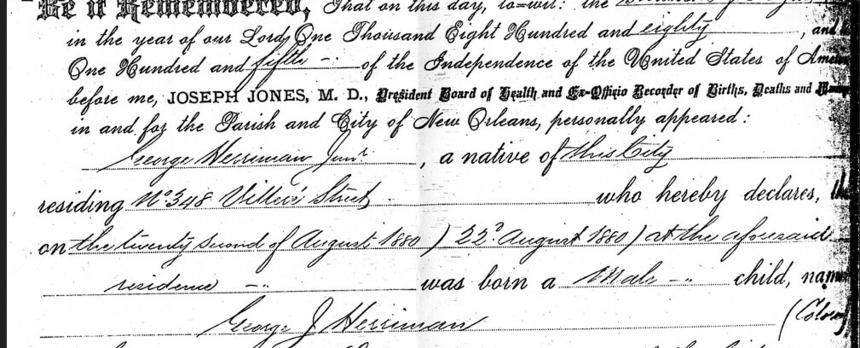 Be it Remembered, That on this day, to=wit: the
in the year of our Lord One Thousand Eight Hundred and eighty, and
One Hundred and fifth -: of the Independence of the United States of Ame
before me, JOSEPH JONES, M. D., President Board of Health and Ex-Officio Recorder of Births, Deaths and
in and for the Parish and City of New Orleans, personally appeared:
George Herriman Junr, a native of this City
residing No 348 Villere Street who hereby declares, th
on the twenty second of August 1880 (22d August 1880) at the aforesaid
residence -.. was born a Male -.. child, nam
George J Herriman (Colored